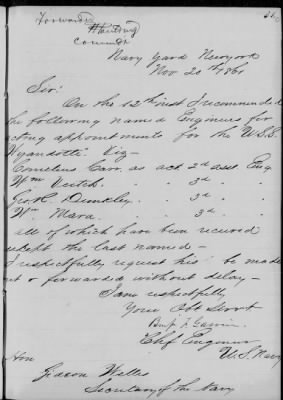 Forwarded
Comdt
Navy Yard New York
Nov 20th 1861
Sir:
On the 12th inst I recommended
the following named Engineers for
acting appointments for the U.S.S.
Wyandotte Viz—
Cornelius Carr. as act. 2d asst Eng.
Wm Veitch. " 3d " "
Geo. R. Dunkley. " 3d " "
Wm Mara. " 3d " "
all of which have been received
except the last named—
I respectfully request his be made
out & forwarded without delay—
I am respectfully
Your Obt Servt
Benj. F. Garvin.
Chf Engineer
U.S. Navy
Hon
Gideon Welles
Secretary of the Navy